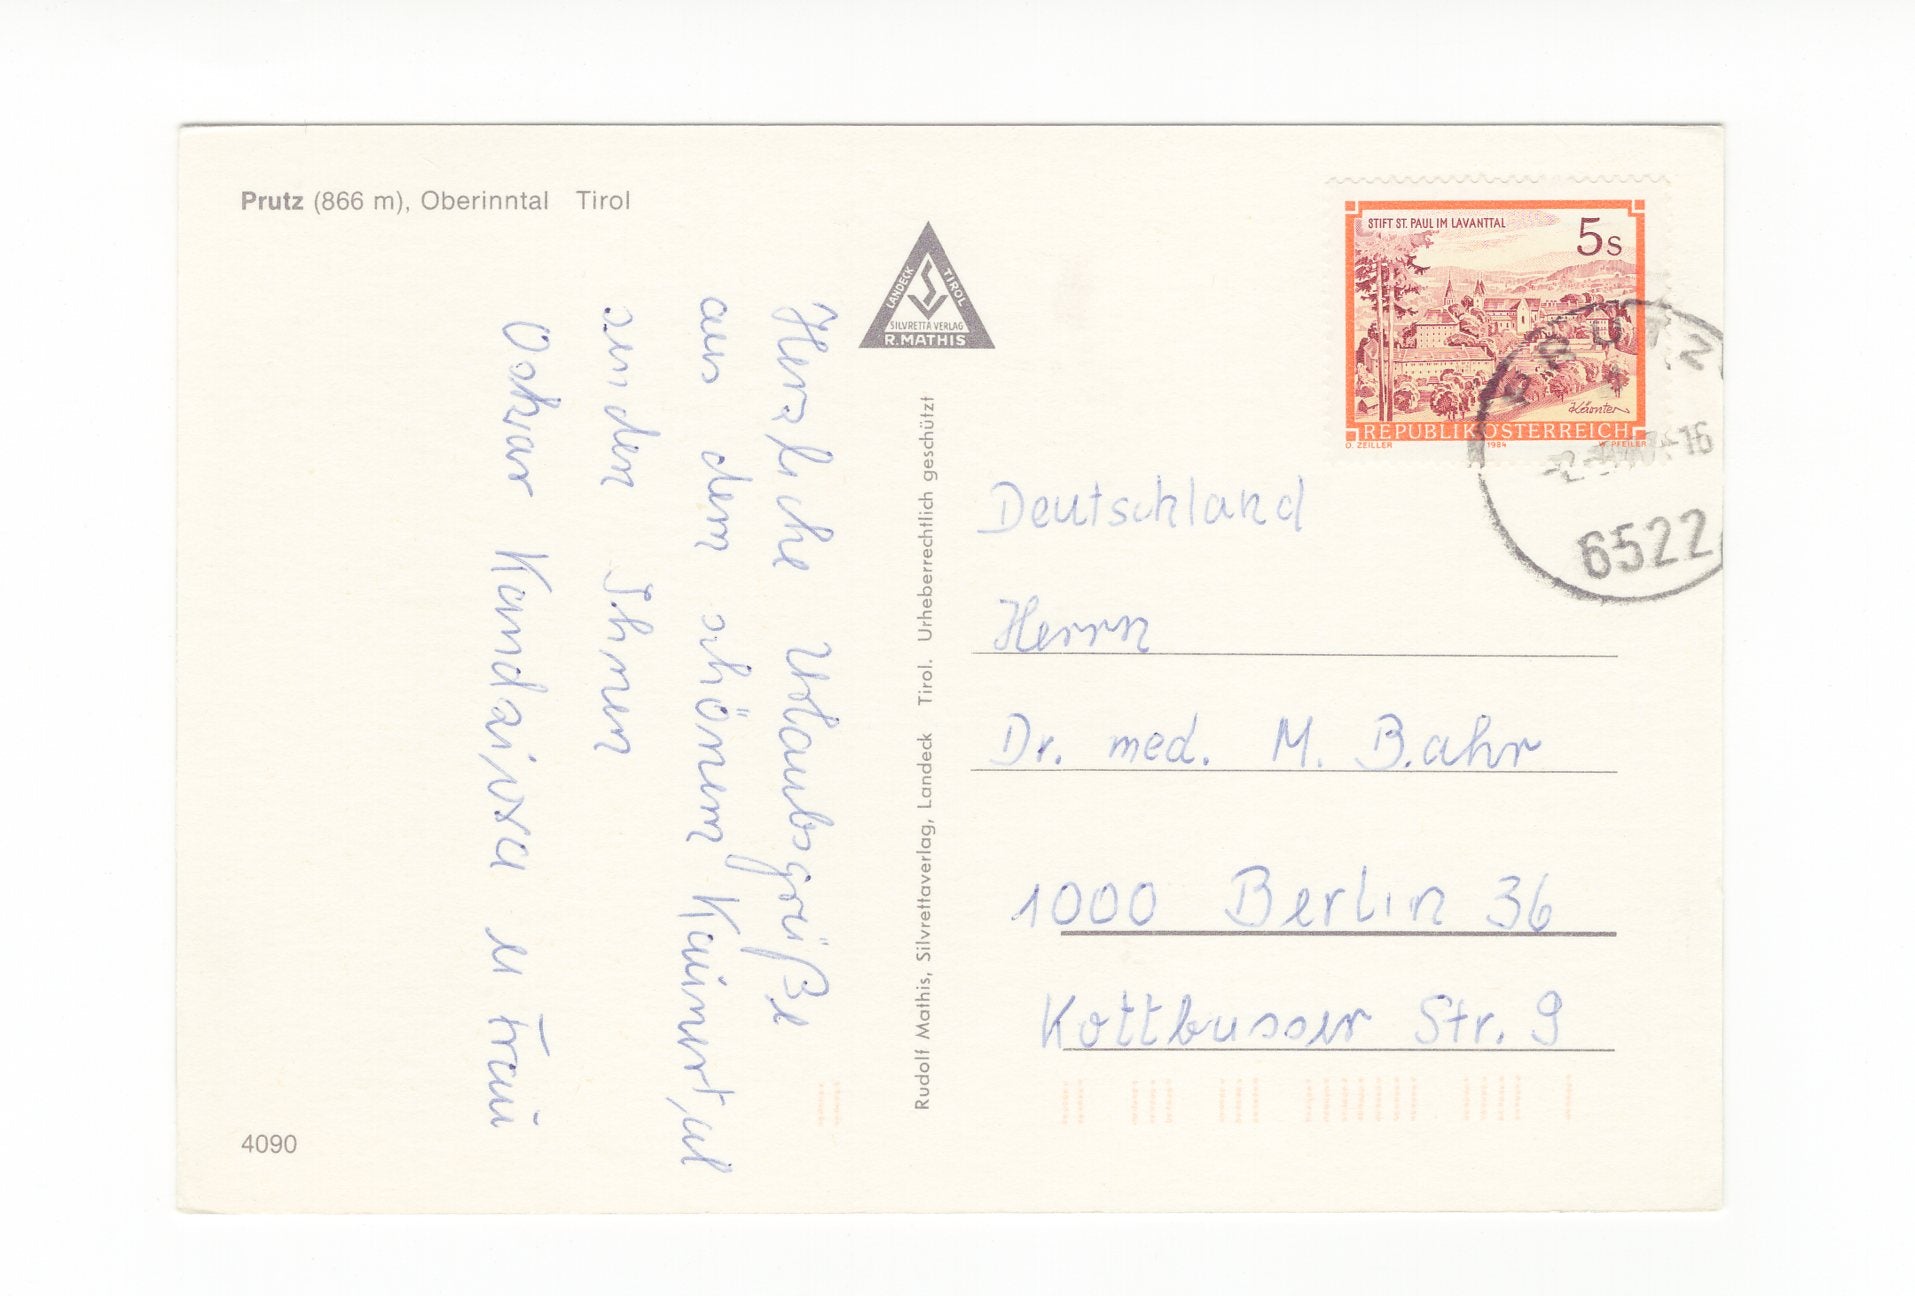 Prutz (866 m), Oberinntal Tirol
LANDECK TIROL
SILVRETTA VERLAG
R. MATHIS
Herzliche Urlaubsgrüße
aus dem schönem Kaunertal
senden Ihnen
Oskar u Frau
4090
Rudolf Mathis, Silvrettaverlag, Landeck Tirol. Urheberrechtlich geschützt
STIFT ST. PAUL IM LAVANTTAL
5s
Kärnten
REPUBLIK ÖSTERREICH
O. ZEILLER 1984 W. PFEILER
PRUTZ
-16
6522
Deutschland
Herrn
Dr. med. M. Bahr
1000 Berlin 36
Kottbusser Str. 9